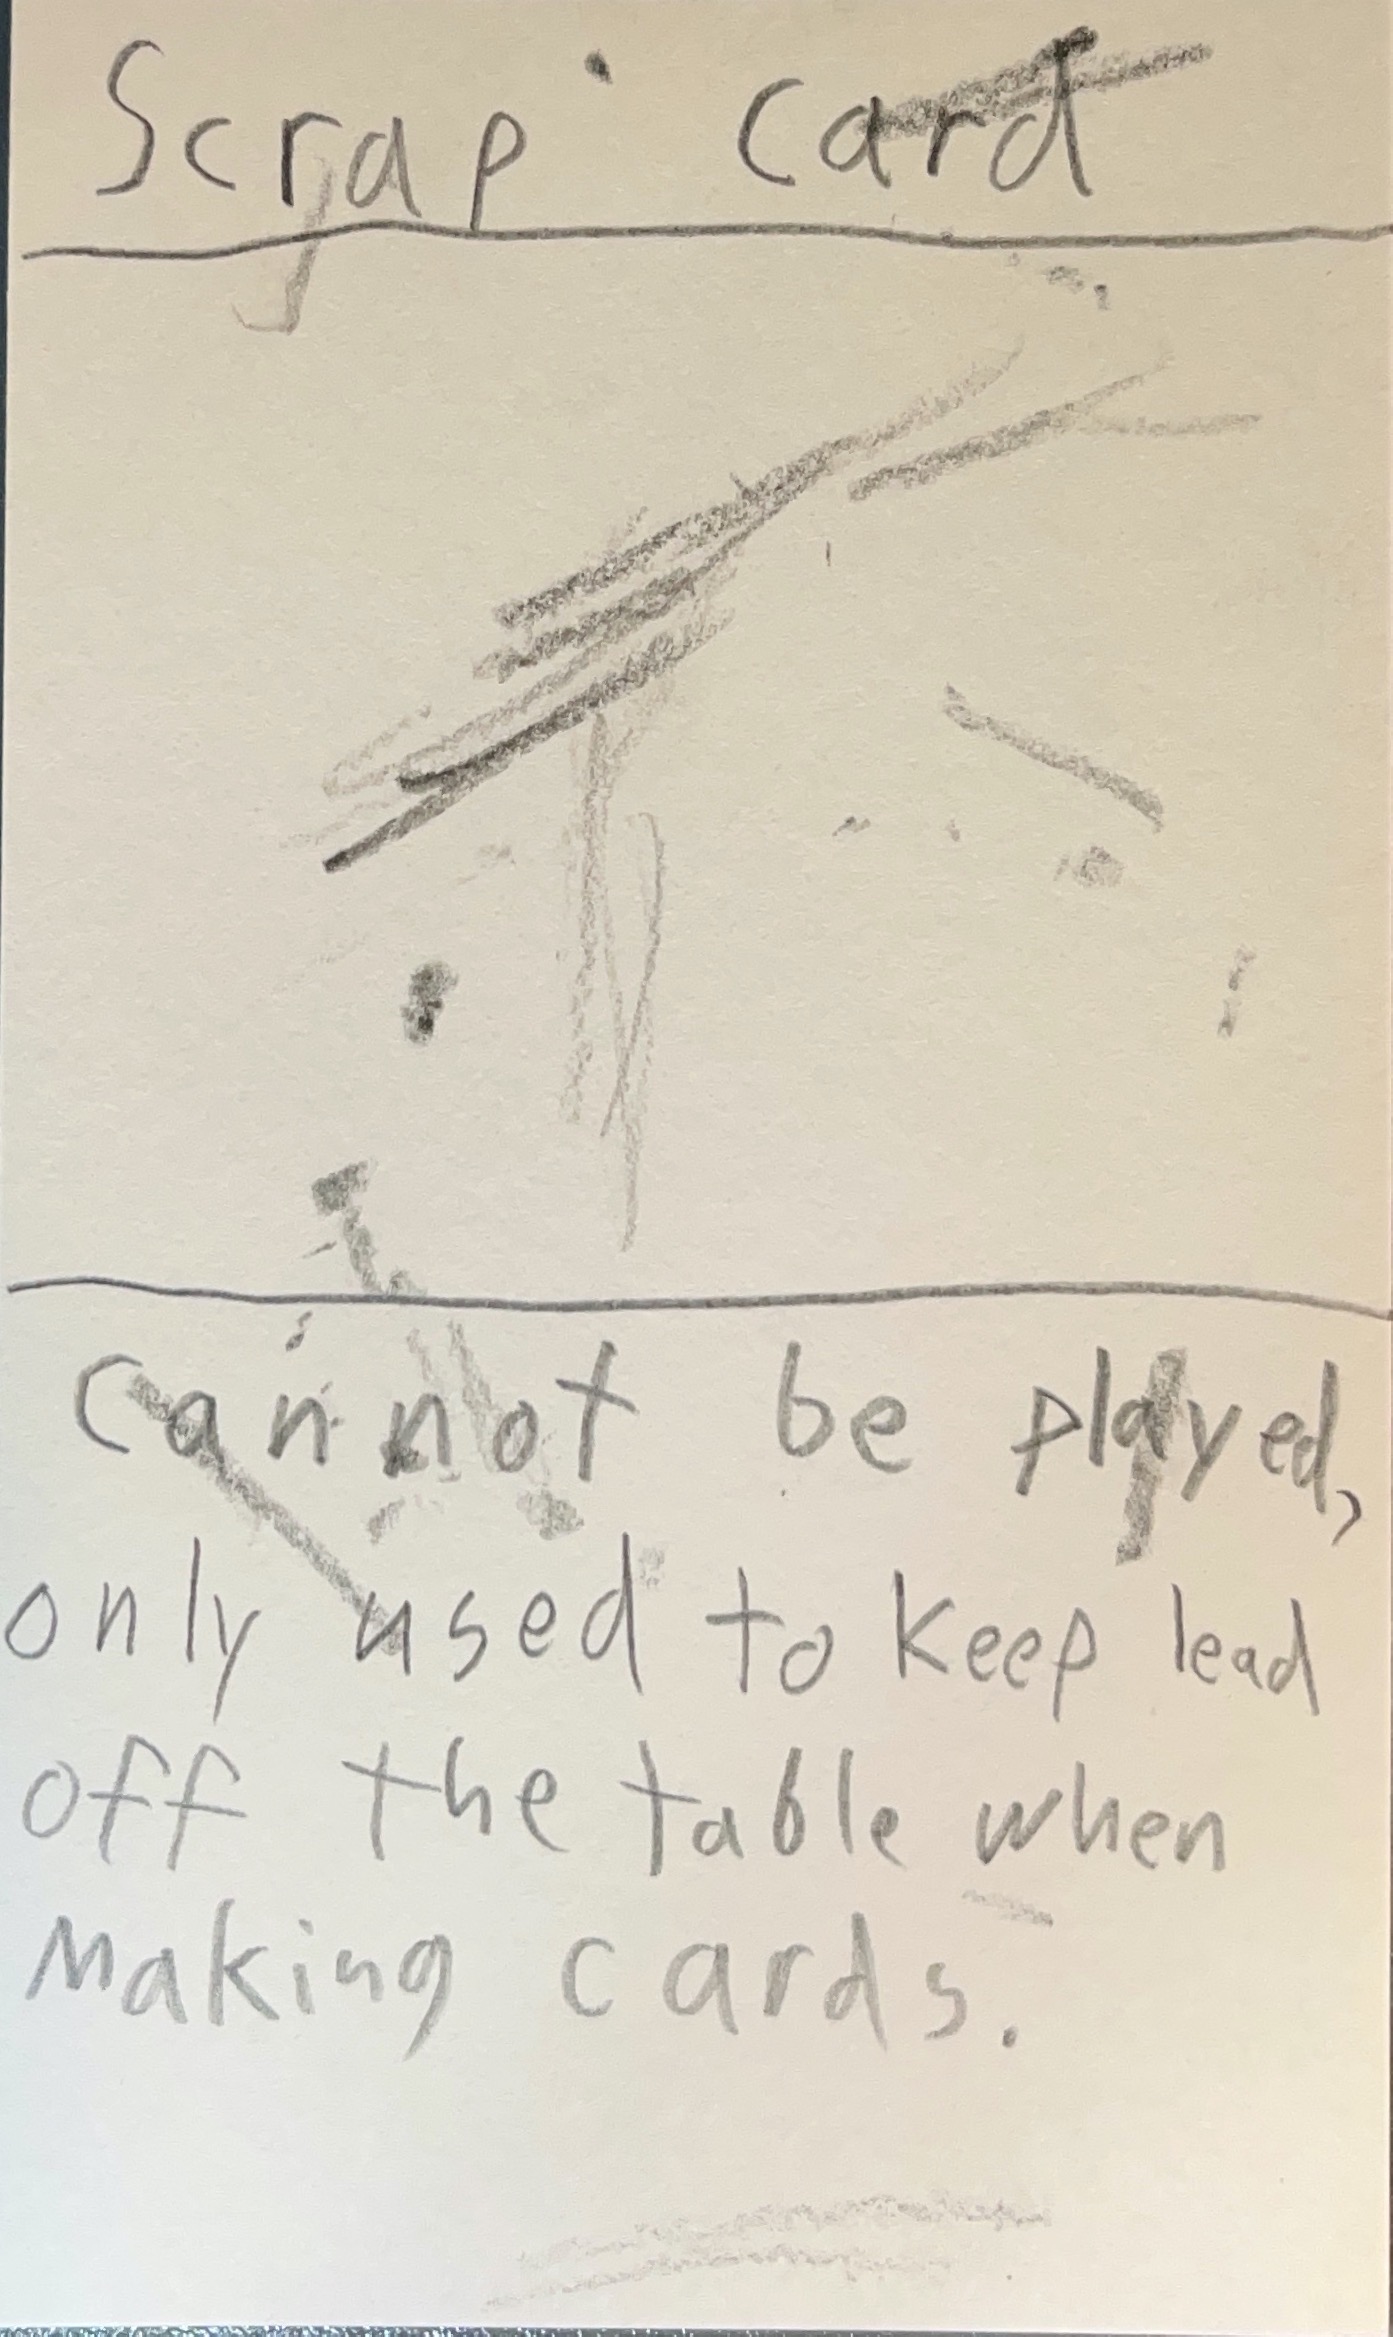 Scrap card
cannot be played,
only used to keep lead
off the table when
Making cards.